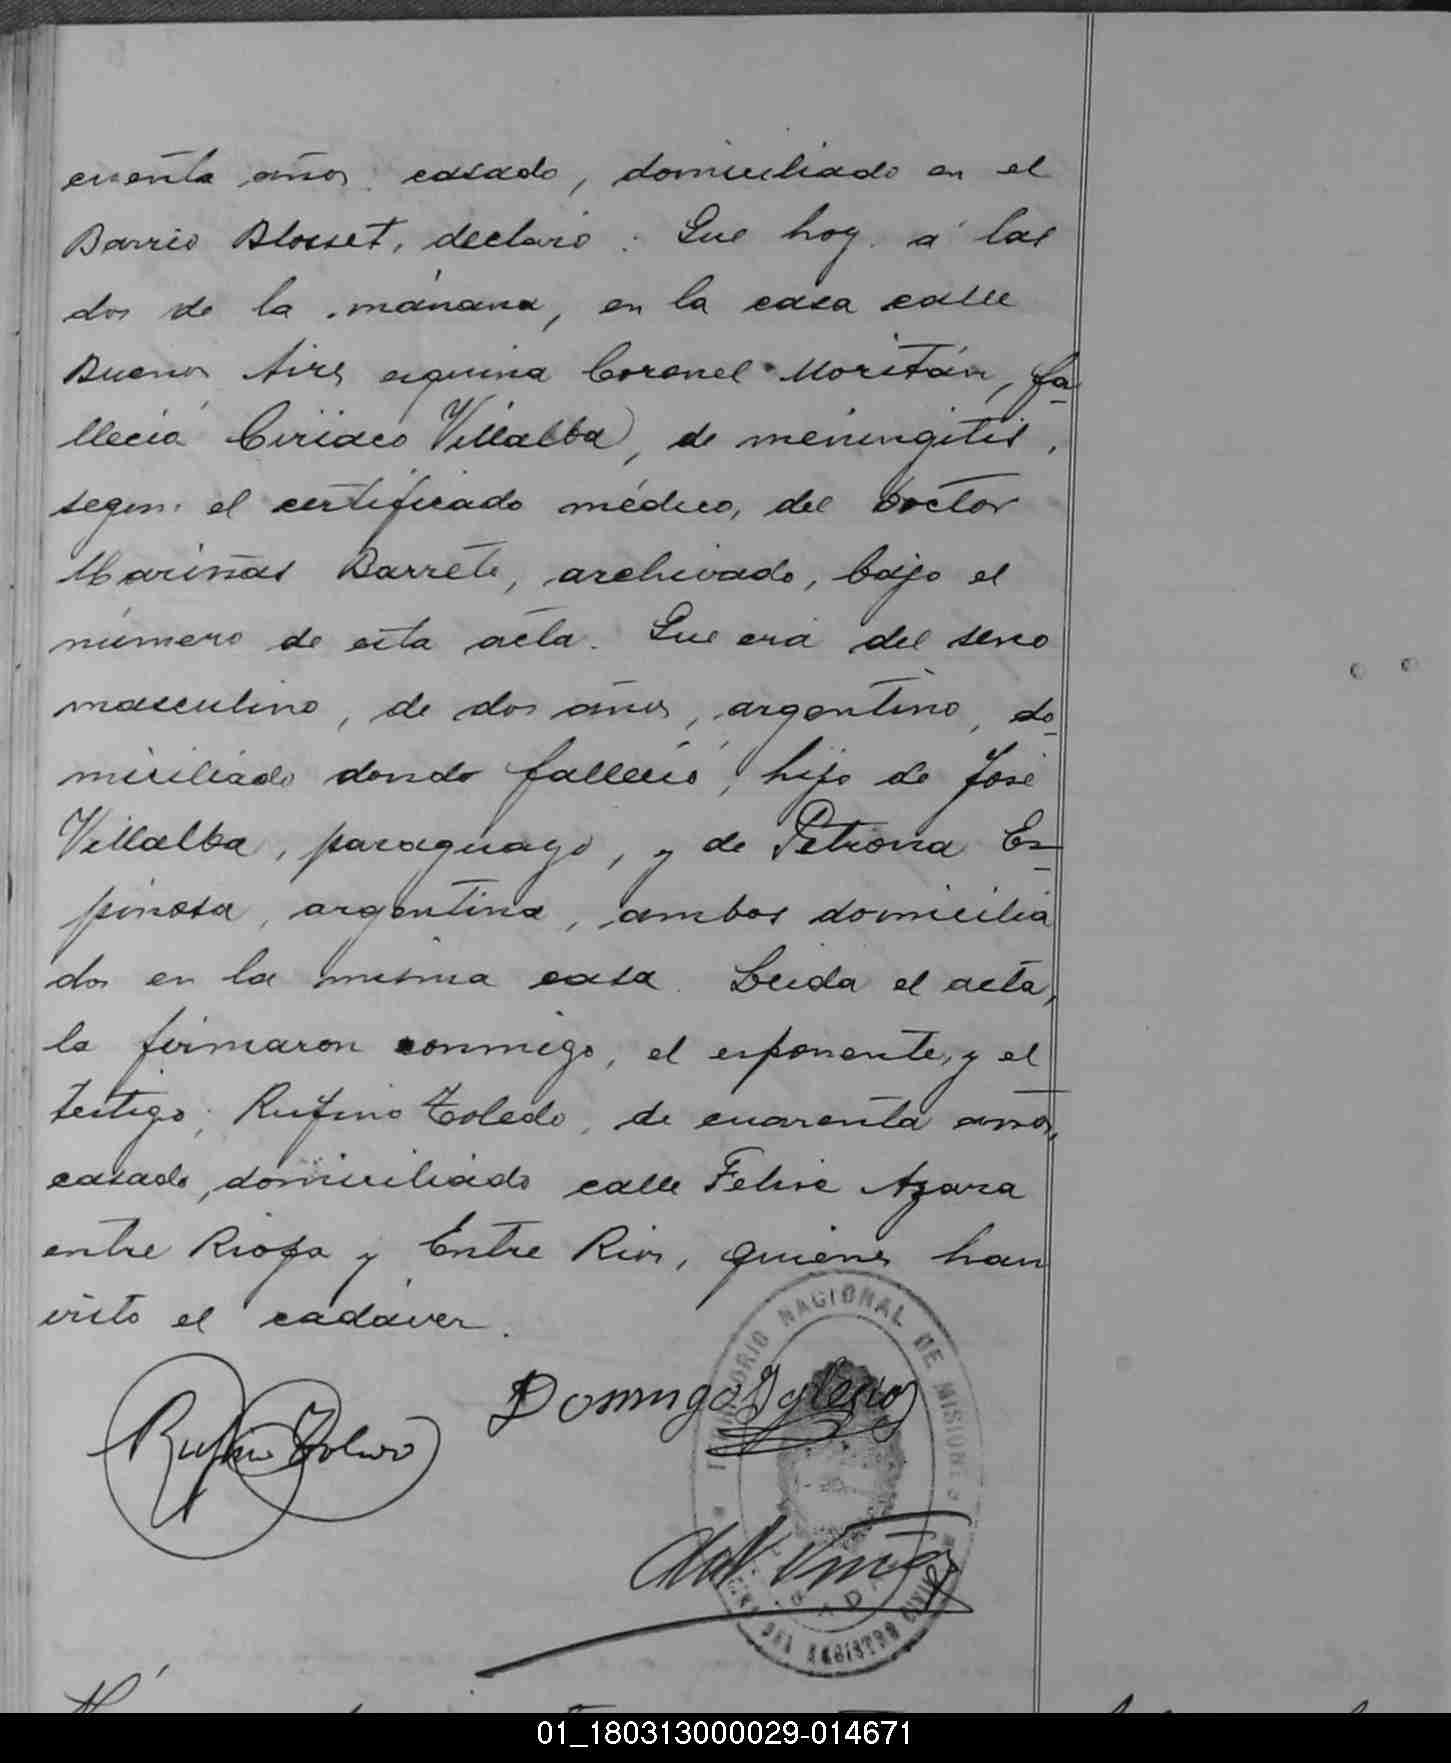 cuenta años, casado, domiciliado en el
Barrio Blosset, declaró: Que hoy, a las
dos de la mañana, en la casa calle
Buenos Aires esquina Coronel Moritán, fa-
lleció Ciriaco Villalba, de meningitis,
segun el certificado médico, del Doctor
Mariñas Barrete, archivado, bajo el
número de esta acta. Que era del sexo
masculino, de dos años, argentino, do-
miciliado donde falleció, hijo de José
Villalba, paraguayo, y de Petrona Es-
pinosa, argentina, ambos domicilia
dos en la misma casa. Leida el acta,
la firmaron conmigo, el exponente, y el
testigo, Rufino Toledo, de cuarenta años,
casado, domiciliado calle Felix Azara
entre Rioja y Entre Rios, quienes han
visto el cadáver.
Domingo Iglesias
Rufino Toledo
TERRITORIO NACIONAL DE MISIONES
DEL REGISTRO CIVIL
01_180313000029-014671